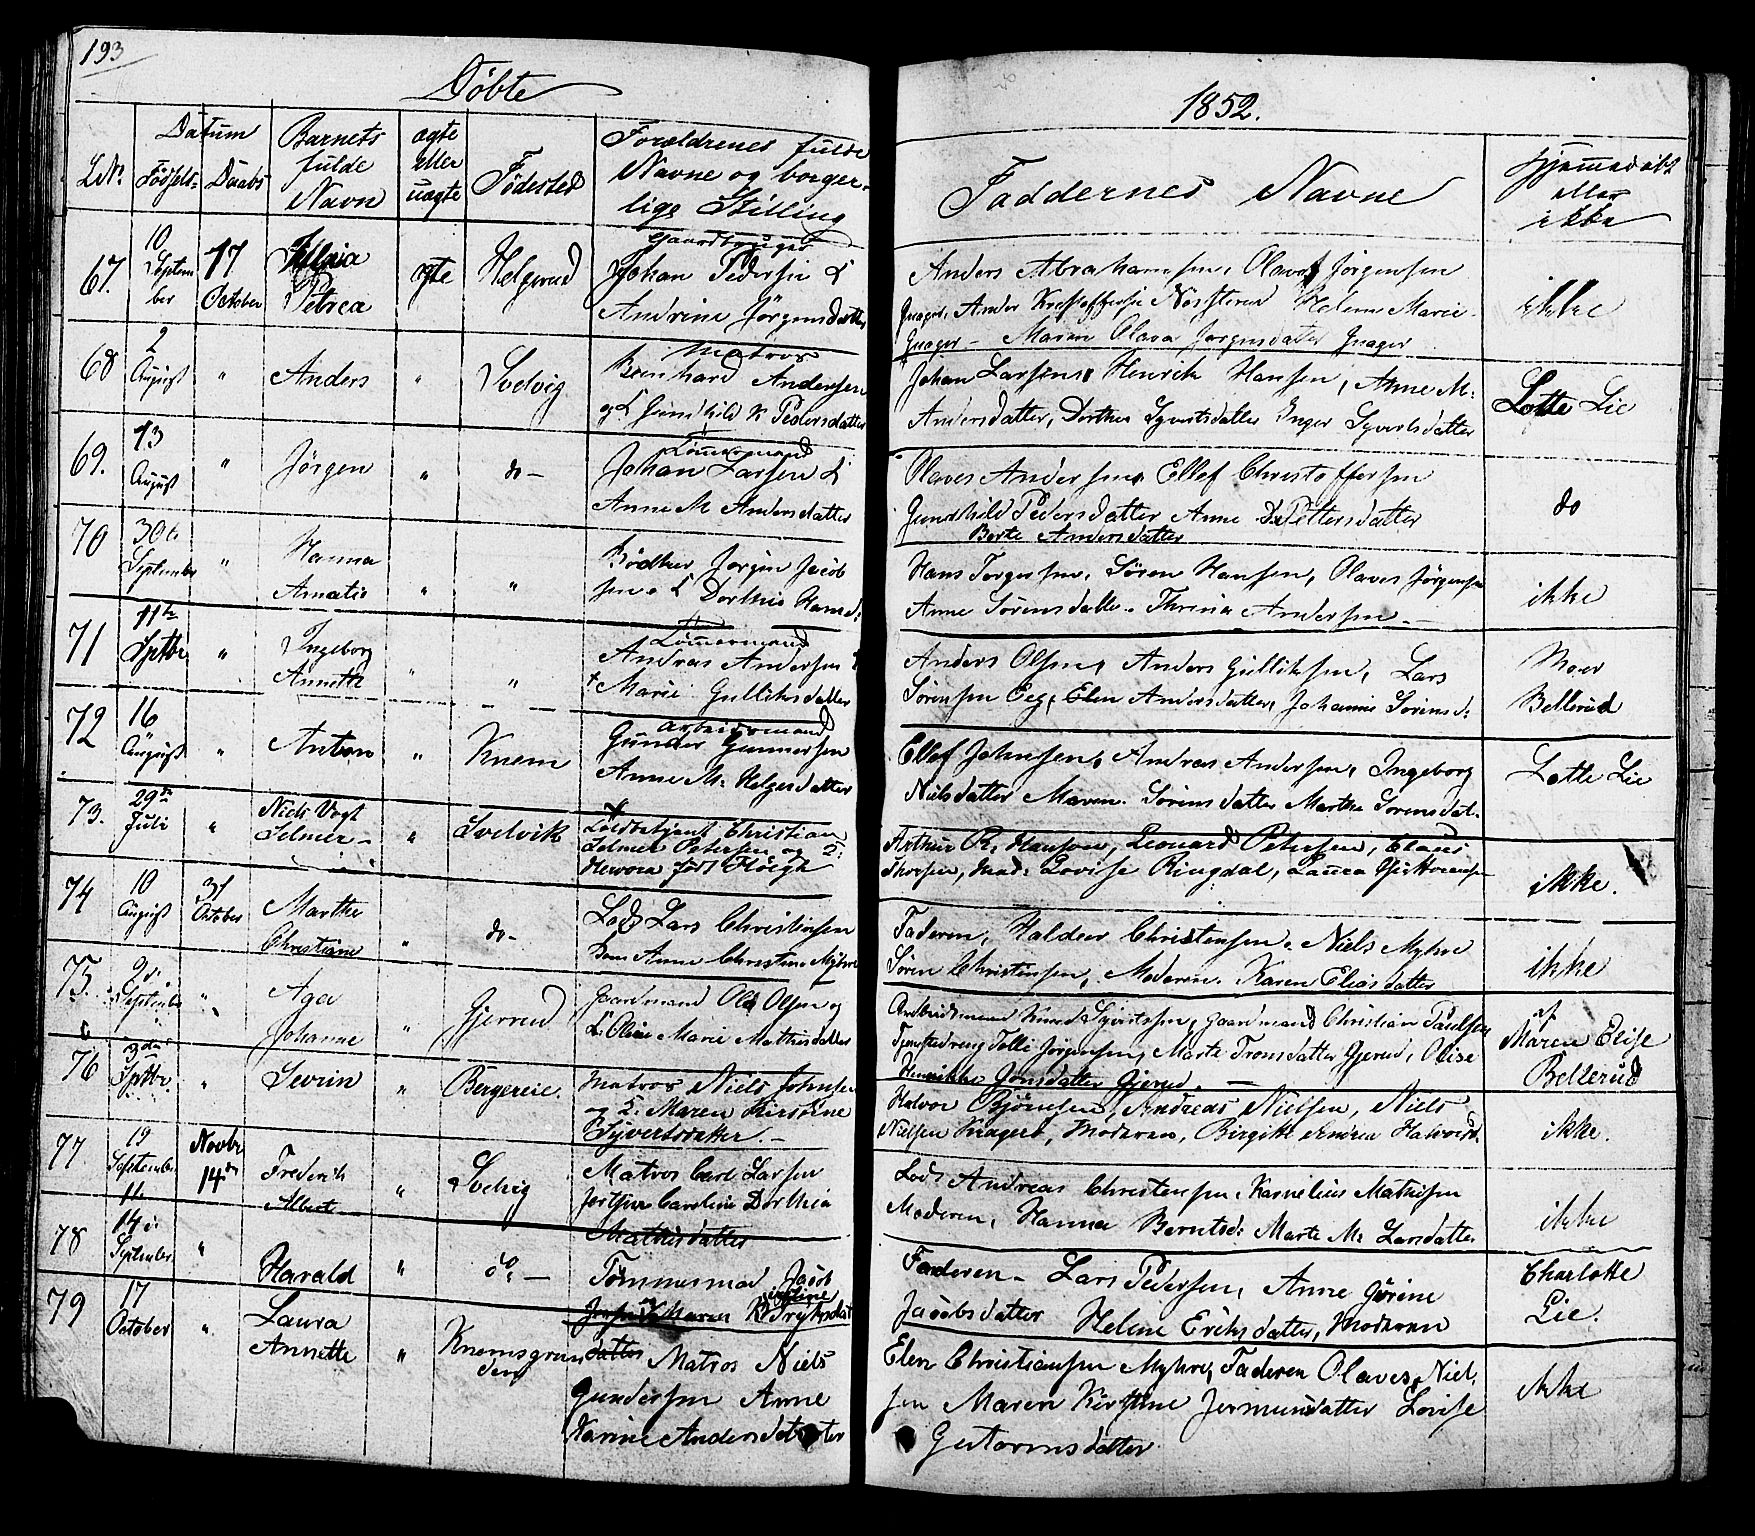 193
Döbte
1852.
LNr.
Datum
Födsels-
Daabs
Barnets
fulde
Navn
ægte
eller
uægte
Födested
Forældrenes fulde
Navne og borger-
lige Stilling
Faddernes Navne
hjemmedöbt
eller
ikke
67.
10
Septem
ber
17
October
Petrea
ægte
Helgerud
Gaardbruger
Johan Pedersen &
Andrine Jörgensdatter
Anders Abrahamsen, Olaves Jörgensen
Gnager, Anders Helene Marie
Gnager - Maren Olava Jorgensdatter Gnager
ikke
68
2
August
"
Anders
"
Svelvig
Matros
Bernhard Andersen
og Gunhild K Pedersdatter
Johan Larsen, Henrik Hansen, Anne M:
Andersdatter, Dorthea Syvertsdatter Inger Syvertsdatter
Lotte Lie
69.
13
August
"
Jörgen
"
do -
Tömmermand
Johan Larsen &
Anne M Andersdatter
Olaves Andersen, Ellef Christoffersen
Gunhild Pedersdatter Anne Pettersdatter
Berte Andersdatter
do
70
30te
September
"
Hanna
Amatie
"
"
Bödker Jorgen Jacob
sen & Dorthia Hansd:
Hans Torgersen, Sören Hansen, Olaves Jörgensen
Anne Sörensdatter. Thrina Andersen. -
ikke
71
11te
Septbr
"
Ingeborg
Annette
"
"
Tömmermand
Andreas Andersen
Marie Gulliksdatter
Anders Olsen, Anders Gulliksen, Lars
Sörensen Eeg, Elen Andersdatter, Johanne Sörensd:
Moer
Bellerud
72
16
August
"
Anton
"
Knem
Arbeidsmand
Gunder Gunnersen
Anne M: Helgesdatter
Ellef Johnsen, Andreas Andersen, Ingeborg
Nielsdatter Maren Sörensdatter Marthe Sorensdat.
Lotte Lie
73.
29de
Juli
"
Niels Vogt
Selmer -
"
Svelvik
Christian
Selmer Petersen og
födt Höegh
Arthur R. Hanson, Leonard Petersen, Claus
Thorsen, Mad: Lovise Ringdal, Laura
ikke.
74
10
August
31
October
Marthe
Christiane
"
do -
Lods Lars Christensen
Anne Christine Myhre
Faderen, Haldor Christensen, Niels Myhre
Sören Christensen, Moderen. Karen Eliasdatter
ikke
75.
9de
September
"
Aga
Johanne
"
Gjerrud
Gaardmand Ole Olsen og
Oline Marie Mathisdatter
Arbeidsmand Knud Syvertsen, Gaardmand Christian Paulsen
Tjenstedreng Tolli Jörgensen, Marte Tronsdatter Gjerud, Olise
Henrikke Jonsdatter Gjerud. -
af
Maren Elise
Bellerud
76
Septbr.
"
Sevrin
"
Bergereie.
Matros Niels Johnsen
og Maren Kirstine
Syvertsdatter. -
Halvor Björnsen, Andreas Nielsen, Niels
Nielsen Kragerö, Moderen, Birgitte Andrea Halvorsd.
ikke.
77.
19
September
Novbr
14de
Frederik
Albert
"
Svelvig
Matros Carl Larsen
Caroline Dorthia
Mathisdatter
Lods Andreas Christensen, Kornelius Mathisen
Moderen, Hanna Berntsd: Marte M: Larsdatter
ikke
78
14de
September
"
Harald
"
do: -
Tömmermad Jacob
Maren
Faderen - Lars Pedersen, Anne Gurine
Jacobsdatter Helene Eriksdatter, Moderen
Charlotte
Lie.
79
17
October
"
Laura
Annette
"
Knemsgrun
den
datter Matros Niels
Gundersen Anne
Karine Andersdatter
Elen Christiansen Myhre, Faderen Olaves Niel,
sen Maren Kirstine Jermundatter Lovise
Gutormsdatter
ikke